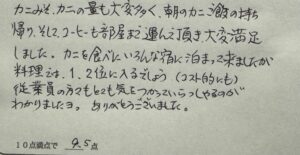 カニみそ、カニの量も大変多く、朝のカニご飯の持ち
帰り、そして、コーヒーも部屋まで運んで頂き大変満足
しました。カニを食べにいろんな宿に泊まって来ましたが
料理では、1、2位に入るでしょう(コスト的にも)
従業員の方もとても気をつかっていらっしゃるのが
わかりましたヨ。ありがとうございました。
10点満点で 9.5 点